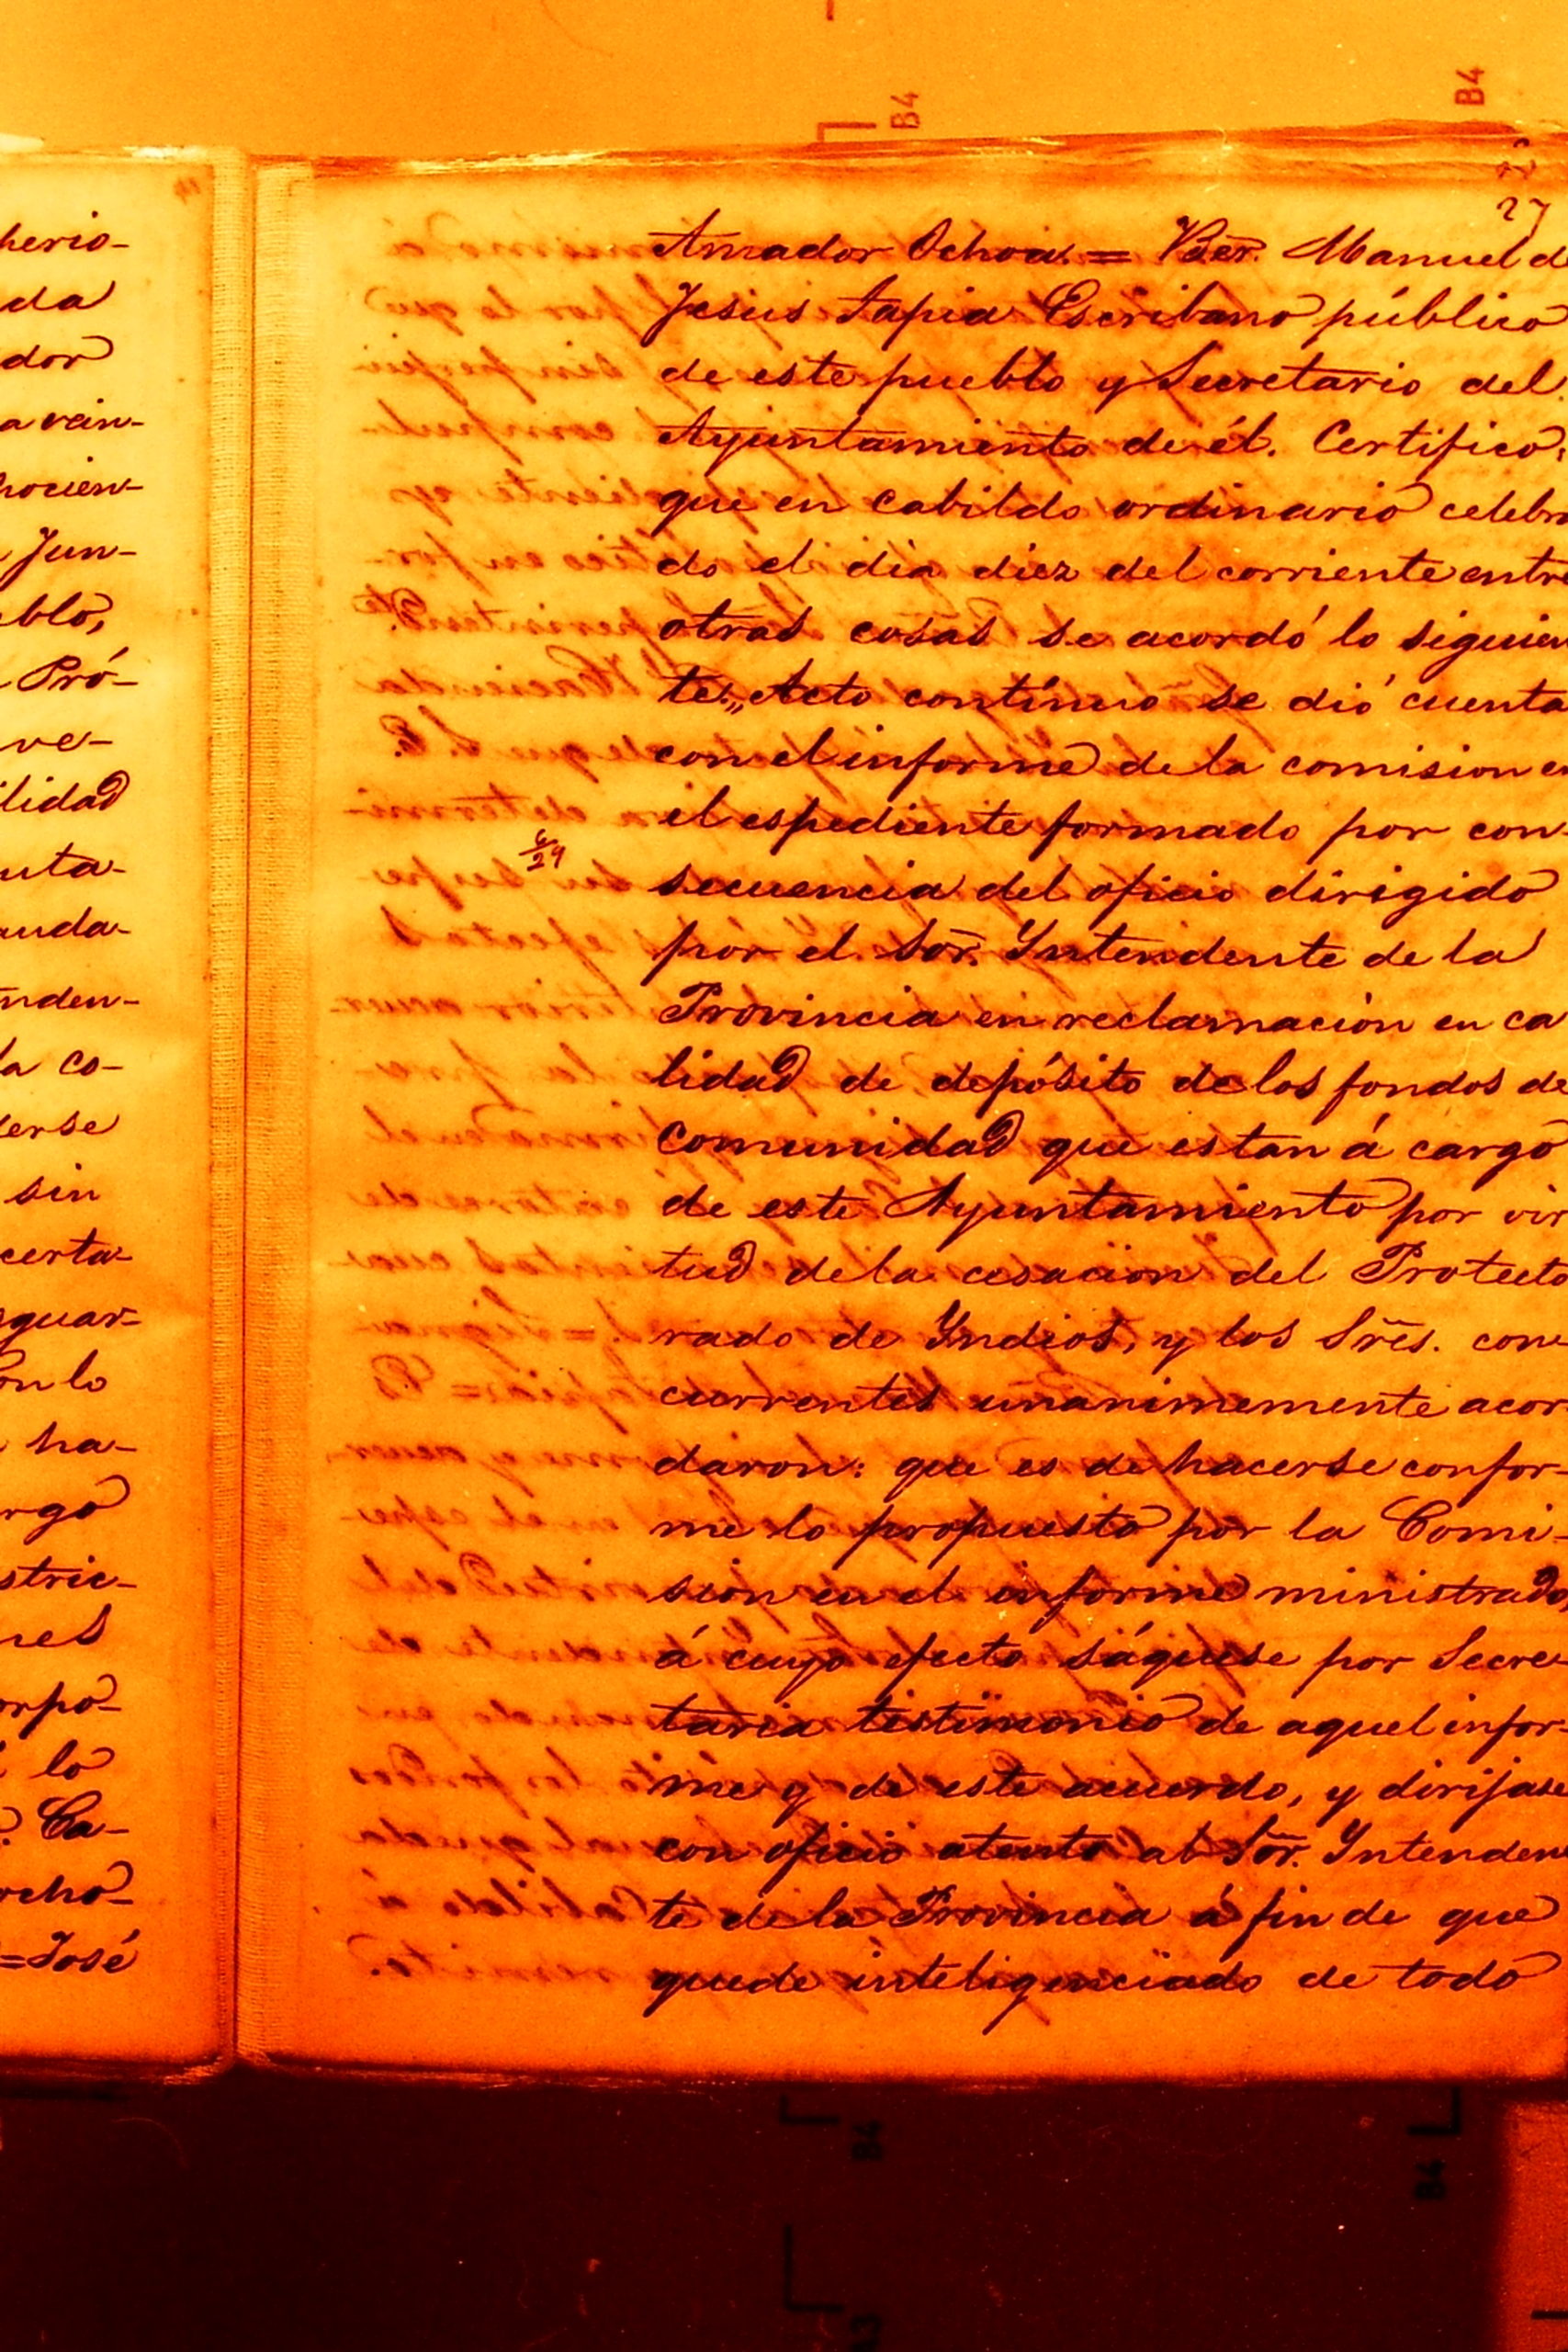 herio-
da
dor
a vein-
hocien-
Jun-
eblo,
Pró-
ve-
ilidad
uta-
auda-
nden-
la co-
derse
sin
certa-
sguar-
on lo
ha-
argo
stric-
nes
orpo-
lo
Ca-
ocho-
=José
B4
B4
27
Amador Ochoa. = Ber. Manuel d
Jesus Tapia Escribano público
de este pueblo y Secretario del
Ayuntamiento de él. Certifico:
que en Cabildo ordinario celebra
do el dia diez del corriente entre
otras cosas se acordó lo siguien
te „ Acto contínuo se dió cuenta
con el informe de la comision en
el espediente formado por con-
6/29
secuencia del oficio dirigido
por el Sor. Yntendente de la
Provincia en reclamación en ca
lidad de depósito de los fondos de
comunidad que estan á cargo
de este Ayuntamiento por vir
tud de la cesacion del Protecto
rado de Yndios, y los Sres. con-
currentes unanimemente acor-
daron: que es de hacerse confor-
me lo propuesto por la Comi-
sion en el informe ministrado
á cuyo efecto sáquese por Secre-
taria testimonio de aquel infor-
me y de este acuerdo, y dirijase
con oficio atento al Sor. Yntenden-
te de la Provincia á fin de que
quede inteligenciado de todo
B4
B4
A3